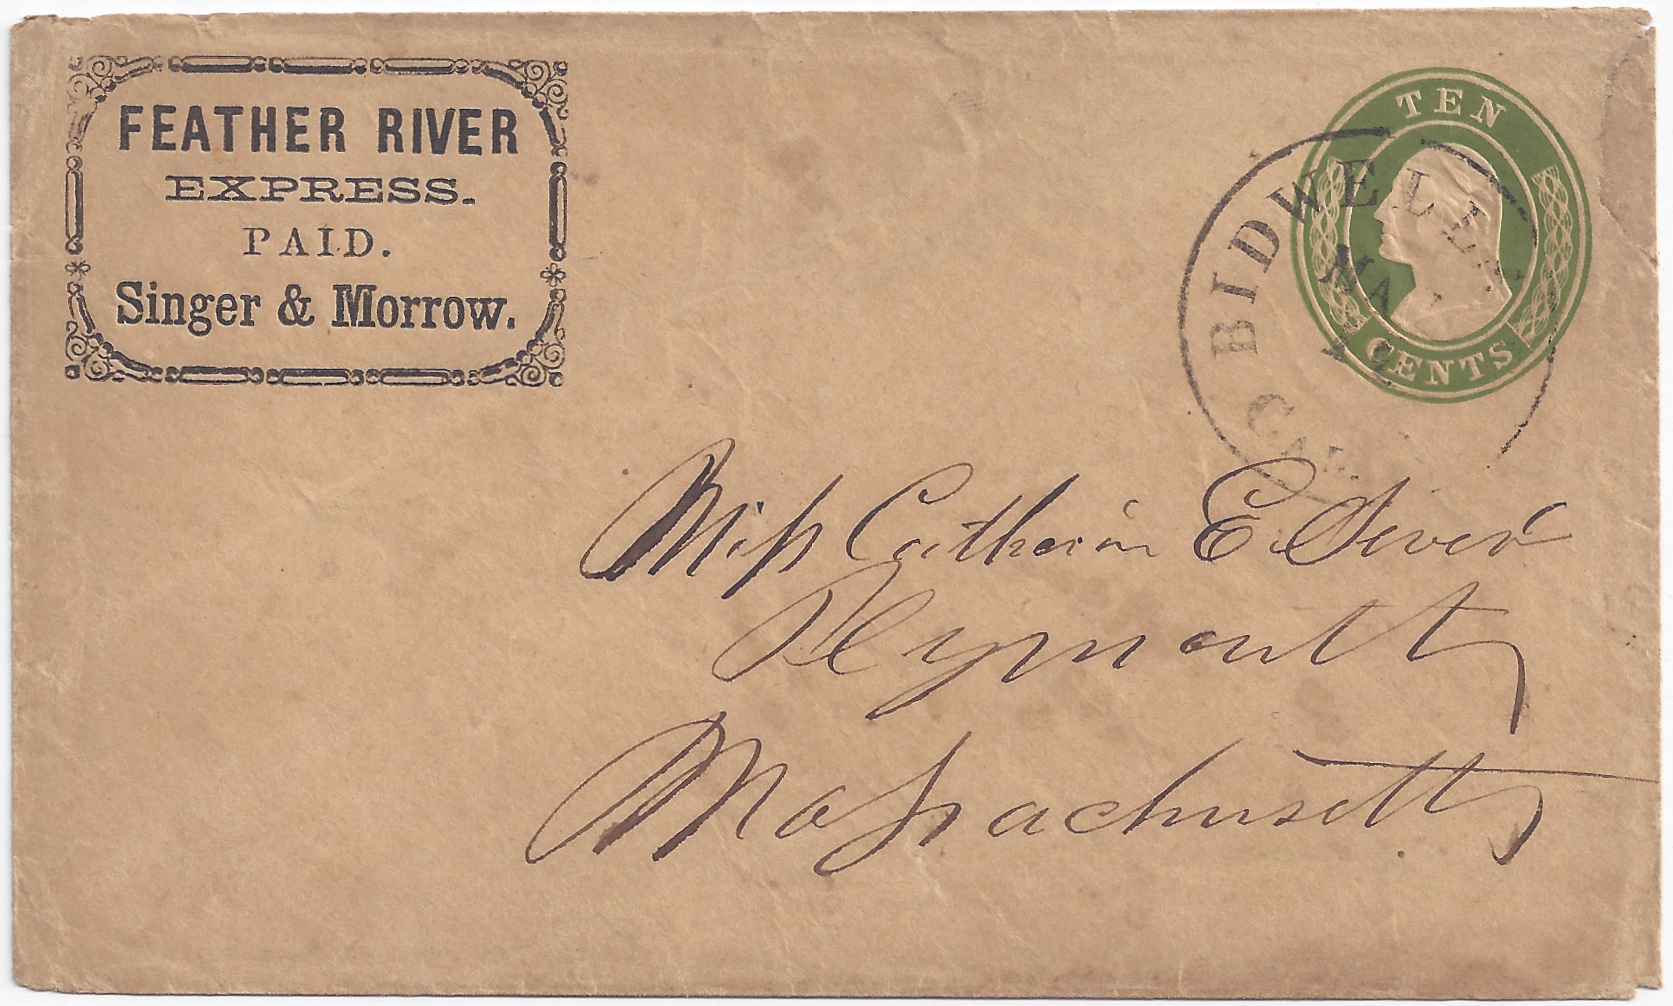 FEATHER RIVER
EXPRESS.
PAID.
Singer & Morrow.
TEN
CENTS
BIDWELLS
CAL.
Miss Catherin E. Sever
Plymouth
Massachusetts